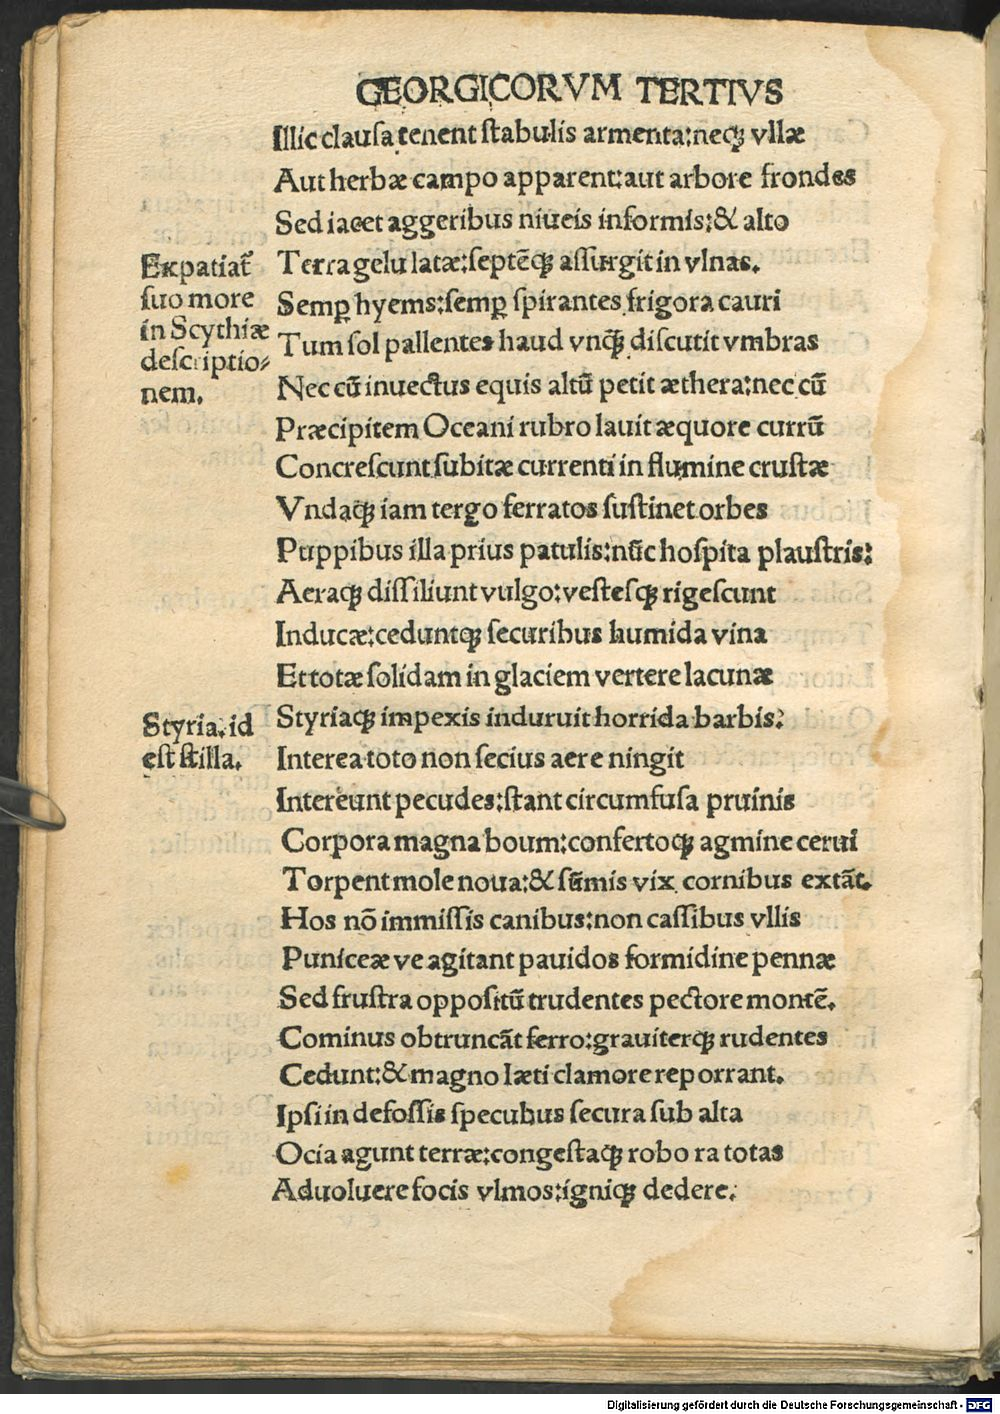 GEORGICORVM TERTIVS
Illic clauſa tenent ſtabulis armenta:neqꝫ vllæ
Aut herbæ campo apparent:aut arbore frondes
Sed iacet aggeribus niueis informis:& alto
Terra gelu latæ:ſeptēqꝫ aſſurgit in vlnas.
Semꝑ hyems:ſemꝑ ſpirantes frigora cauri
Tum ſol pallentes haud vnqꝫ̃ diſcutit vmbras
Nec cū inuectus equis altū petit æthera:nec cū
Præcipitem Oceani rubro lauit æquore currū
Concreſcunt ſubitæ currenti in flumine cruſtæ
Vndaqꝫ iam tergo ferratos ſuſtinet orbes
Puppibus illa prius patulis:nūc hoſpita plauſtris:
Aeraqꝫ diſſiliunt vulgo:veſteſqꝫ rigeſcunt
Inducæ:ceduntqꝫ ſecuribus humida vina
Et totæ ſolidam in glaciem vertere lacunæ
Styriaqꝫ impexis induruit horrida barbis:
Interea toto non ſecius aere ningit
Intereunt pecudes:ſtant circumfuſa pruinis
Corpora magna boum:confertoqꝫ agmine cerui
Torpent mole noua:& ſūmis vix cornibus extāt.
Hos nō immiſſis canibus:non caſſibus vllis
Puniceæ ve agitant pauidos formidine pennæ
Sed fruſtra oppoſitū trudentes pectore montē.
Cominus obtruncāt ferro:grauiterqꝫ rudentes
Cedunt:& magno læti clamore reporrant.
Ipſi in defoſſis ſpecubus ſecura ſub alta
Ocia agunt terræ:congeſtaqꝫ robo ra totas
Aduoluere focis vlmos:igniqꝫ dedere.
Expatiat᷑
ſuo more
in Scythiæ
deſcriptio-
nem.
Styria.id
eſt ſtilla.
Digitalisierung gefördert durch die Deutsche Forschungsgemeinschaft - DFG